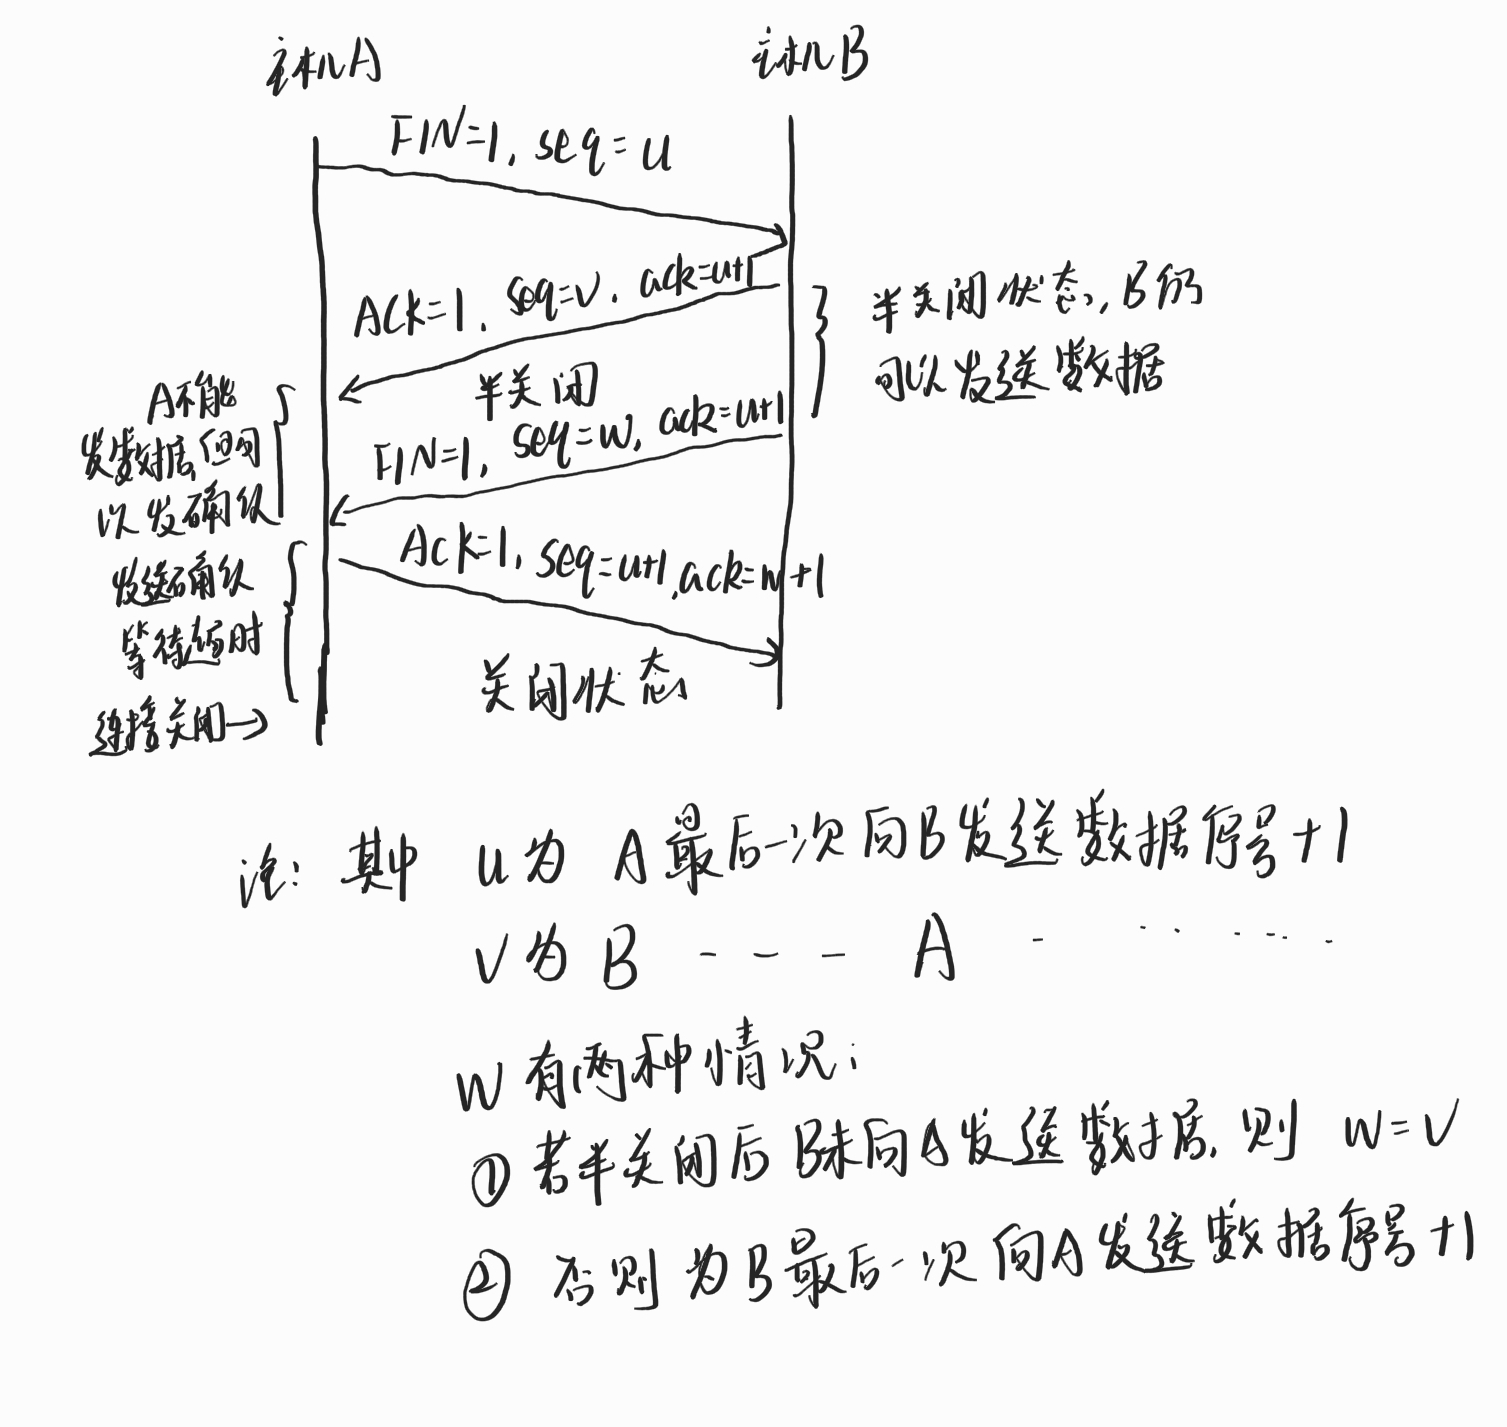 主机A
主机B
FIN=1, seq=u
ACK=1, seq=v, ack=u+1
半关闭状态,B仍
可以发送数据
半关闭
A不能
发数据,但可
以发确认
FIN=1, seq=w, ack=u+1
ACK=1, seq=u+1, ack=w+1
发送确认
等待超时
关闭状态
连接关闭→
注: 其中 u为 A最后一次向B发送数据序号+1
v为 B - - - A - · · · · · ·
w有两种情况:
① 若半关闭后 B未向A发送数据,则 w=v
② 否则为B最后一次向A发送数据序号+1